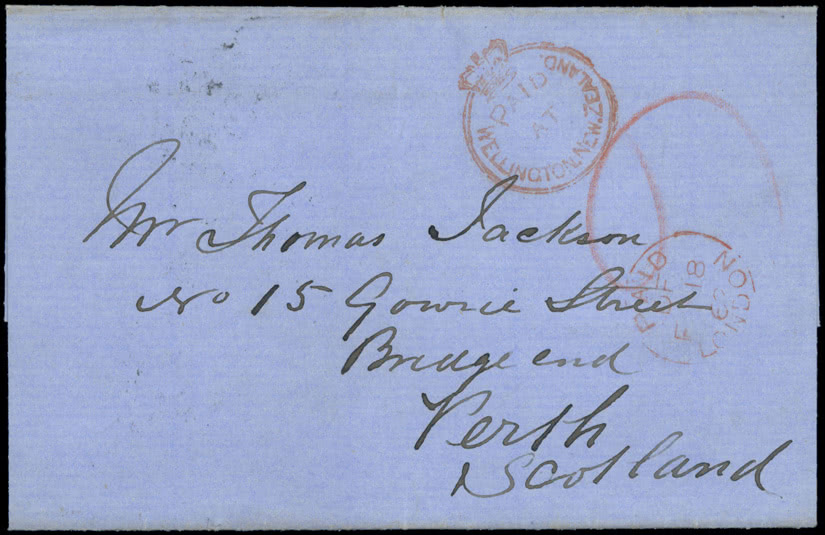 PAID
AT
WELLINGTON. NEW. ZEALAND
Mr Thomas Jackson
No 15 Gowrie Street
Bridge end
Perth
Scotland
PAID
LONDON
18